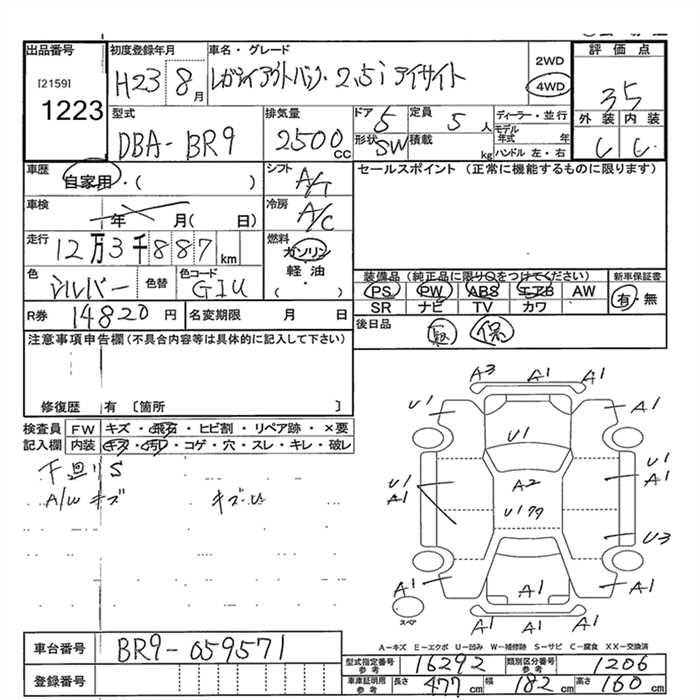 出品番号 初度登録年月 車名・グレード 評価点
[2159]
1223
H23 8月 レガシィアウトバック 2.5i アイサイト 2WD 4WD 35
型式 排気量 ドア 5 定員 5人 ディーラー・並行 外装 内装
DBA-BR9 2500cc 形状 SW 積載 kg モデル年式 年 ハンドル 左・右 C C
車歴 自家用・( ) シフト A/T セールスポイント (正常に機能するものに限ります)
車検 年 月( 日) 冷房 A/C
走行 12万3千887km 燃料 ガソリン 軽油 ( )
色 シルバー 色替 色コード G1U
装備品 (純正品に限り○をつけてください) 新車保証書
PS PW ABS エアB AW 有・無
SR ナビ TV カワ
R券 14820円 名変期限 月 日 後日品 取 保
注意事項申告欄(不具合内容等は具体的に記入して下さい)
修復歴 有 [箇所 ]
検査員 FW キズ・飛石・ヒビ割・リペア跡・×要
記入欄 内装 キズ・汚れ・コゲ・穴・スレ・キレ・破レ
下回りS
A/W キズ キズ・U
A3 A1 A1
U1 A1
U1
U1 A1 A2 U1 A1
U179
U3
A1 A1 A1
スペア A1 A1 A1
A-キズ E-エクボ U-凹み W-補修跡 S-サビ C-腐食 XX-交換済
車台番号 BR9-059571
型式指定番号 参考 16292 類別区分番号 参考 1206
登録番号
車庫証明用 参考 長さ 477cm 幅 182cm 高さ 160cm